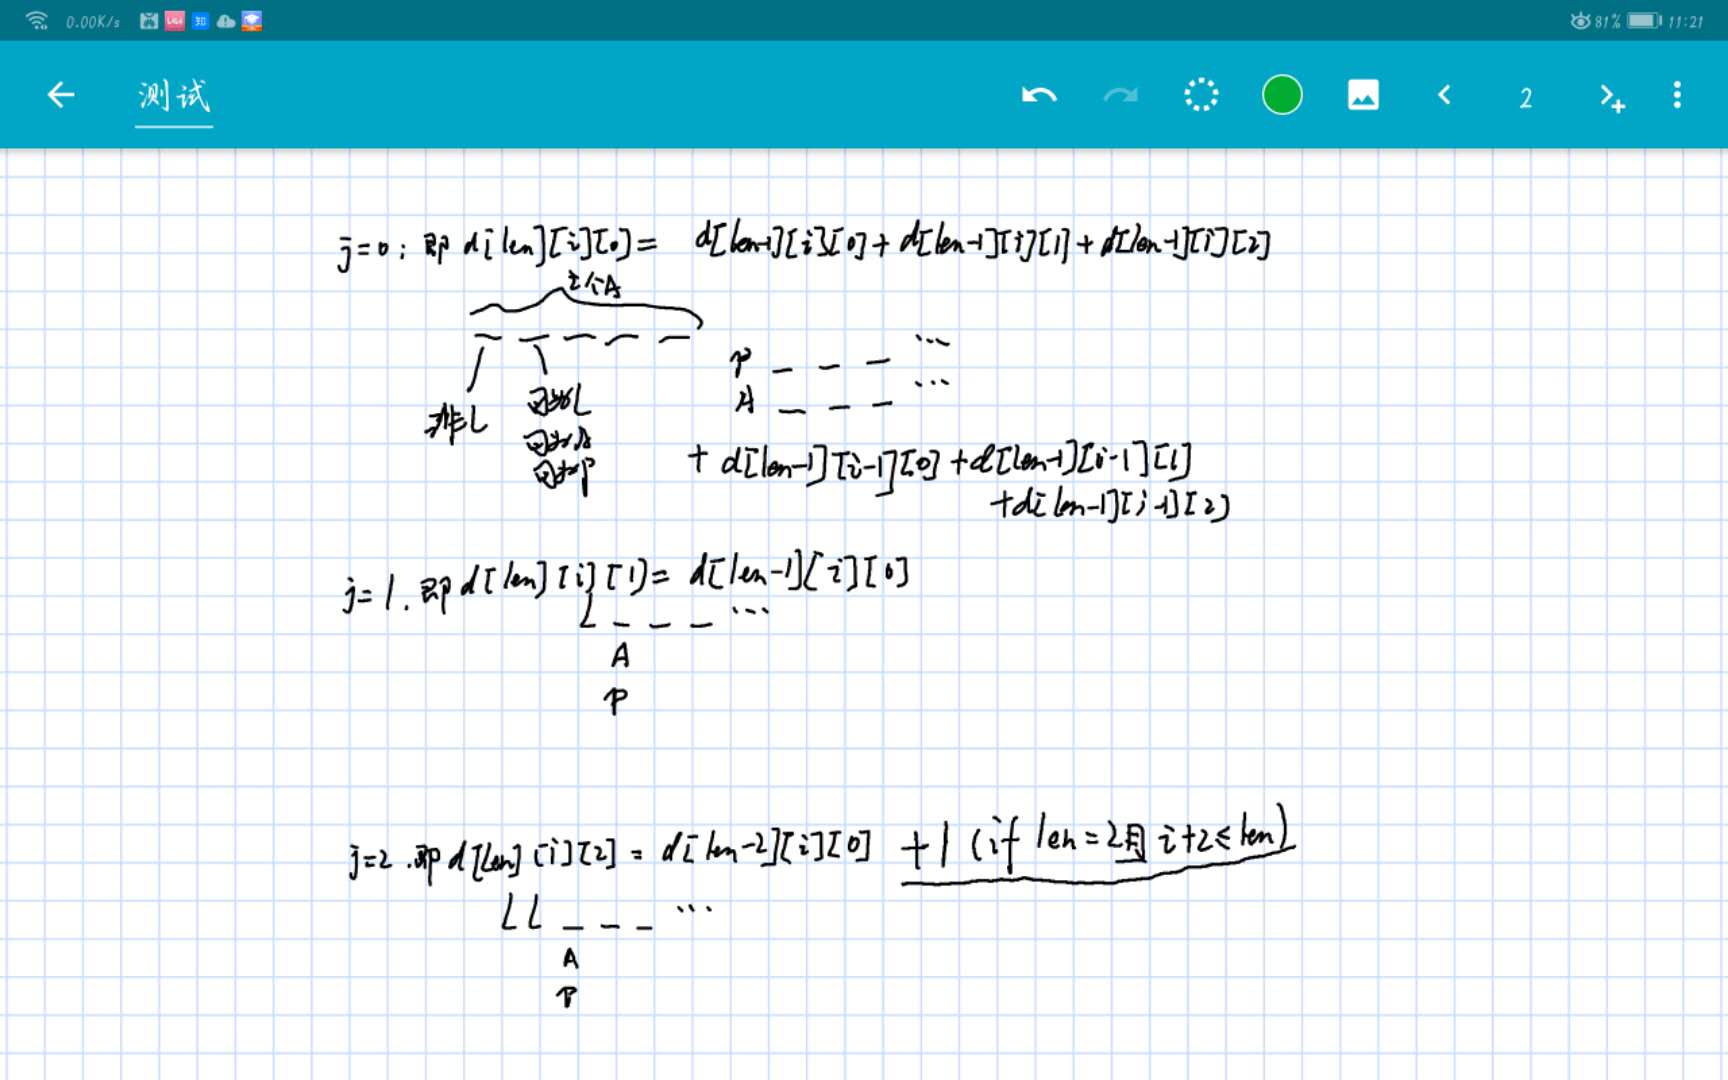 0.00K/s 81% 11:21
测试 2
j=0; 即 d[len][i][0]= d[len-1][i][0]+d[len-1][i][1]+d[len-1][i][2]
i个A
P _ _ _ ...
A _ _ _ ...
非L 可为L
可为A
可为P
+ d[len-1][i-1][0] +d[len-1][i-1][1]
+d[len-1][i-1][2]
j=1. 即 d[len][i][1]= d[len-1][i][0]
L _ _ _ ...
A
P
j=2. 即 d[len][i][2] = d[len-2][i][0] +1 (if len=2且 i+2≤len)
LL _ _ _ ...
A
P